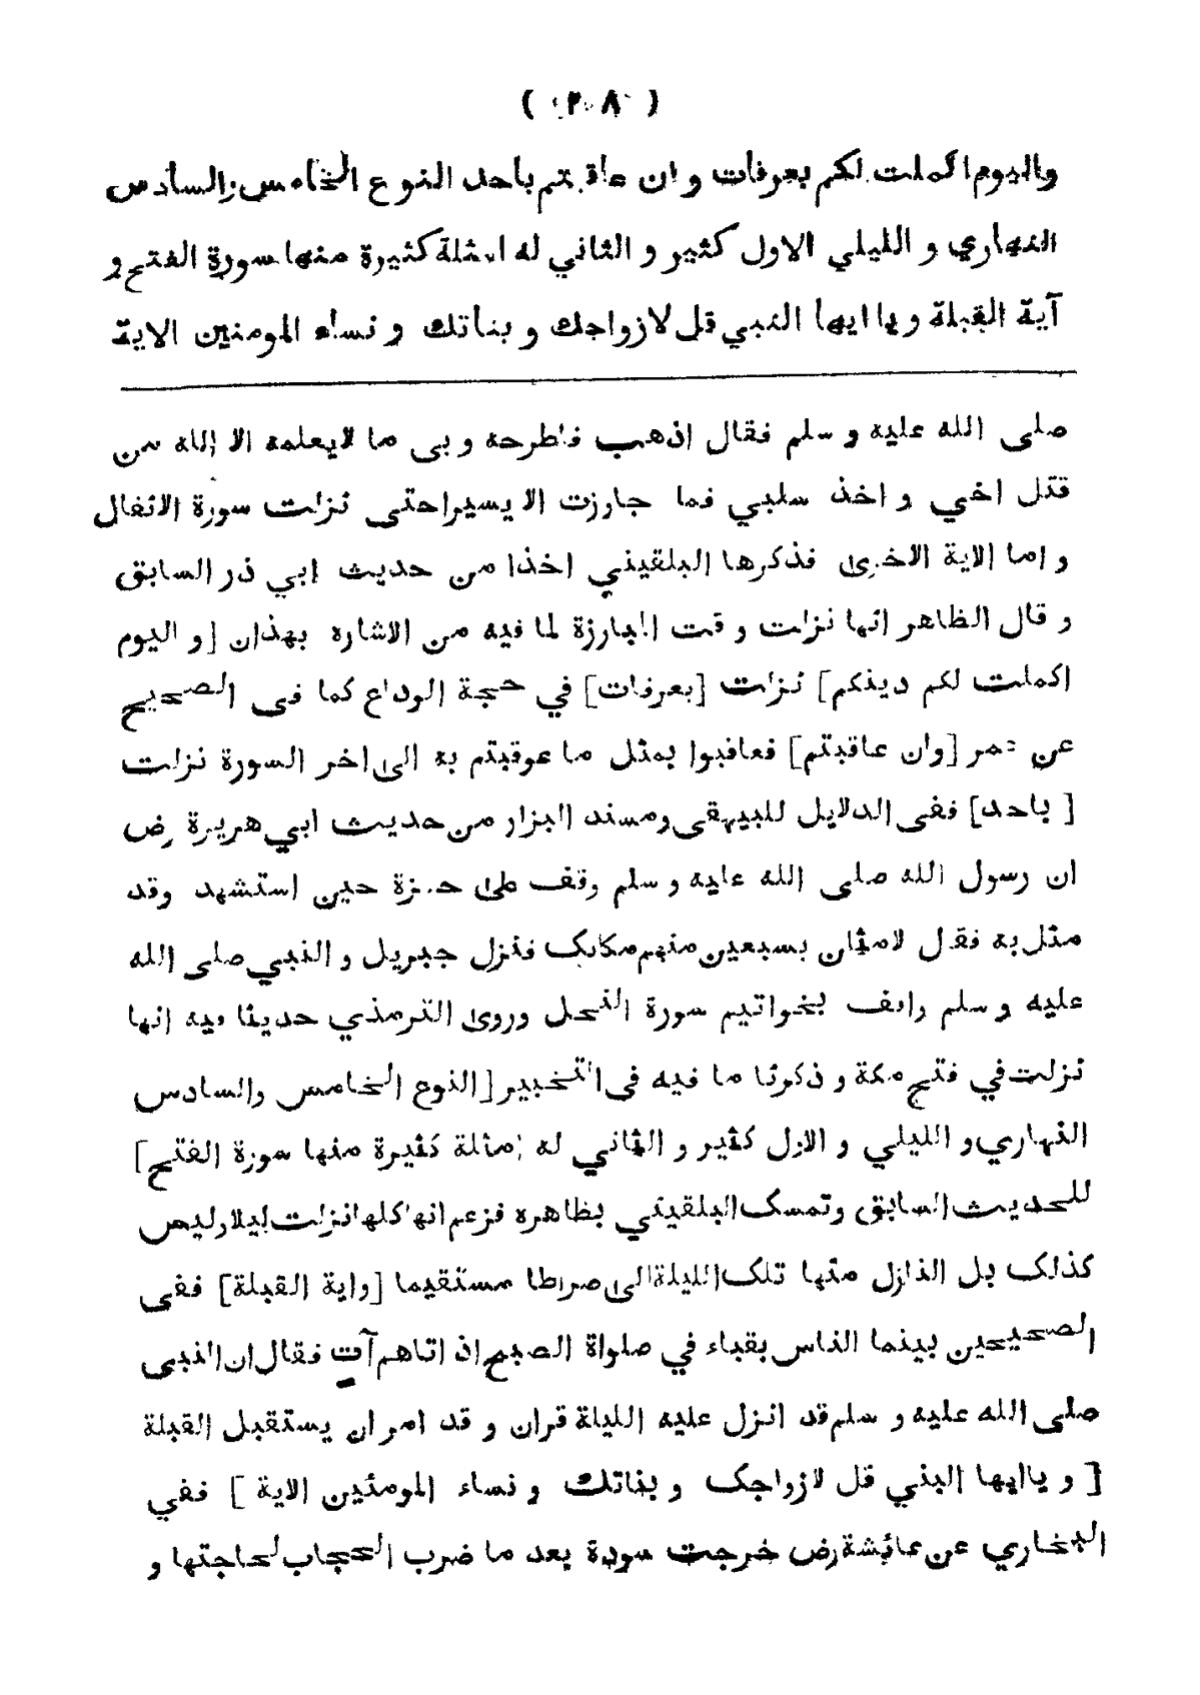 ( ٢٠٨ )
واليوم اكملت لكم بعرفات و ان عاقبتم باحد النوع الخامس والسادس
النهاري و الليلي الاول كثير و الثاني له امثلة كثيرة منها سورة الفتح و
آية القبلة و يا ايها النبي قل لازواجك و بناتك و نساء المومنين الاية
صلى الله عليه و سلم فقال اذهب فاطرحه و بى ما لايعلمه الا الله من
قتل اخي و اخذ سلبي فما جاوزت الا يسيرا حتى نزلت سورة الانفال
و اما الاية الاخرى فذكرها البلقيني اخذا من حديث ابي ذر السابق
و قال الظاهر انها نزلت وقت المبارزة لما فيه من الاشاره بهذان [و اليوم
اكملت لكم دينكم] نزلت [بعرفات] في حجة الوداع كما فى الصحيح
عن عمر [وان عاقبتم] فعاقبوا بمثل ما عوقبتم به الى اخر السورة نزلت
[ باحد] ففى الدلايل للبيهقى ومسند البزار من حديث ابي هريرة رض
ان رسول الله صلى الله عليه و سلم وقف على حمزة حين استشهد وقد
مثل به فقال لامثلن بسبعين منهم مكانك فنزل جبريل و النبي صلى الله
عليه و سلم واقف بخواتيم سورة النحل وروى الترمذي حديثا فيه انها
نزلت في فتح مكة و ذكرنا ما فيه فى التحبير [النوع الخامس والسادس
النهاري و الليلي و الاول كثير و الثاني له امثلة كثيرة منها سورة الفتح]
للحديث السابق وتمسك البلقيني بظاهره فزعم انها كلها نزلت ليلا وليس
كذلك بل النازل منها تلك الليلة الى صراطا مستقيما [واية القبلة] ففى
الصحيحين بينما الناس بقباء في صلواة الصبح اذ اتاهم آت فقال ان النبى
صلى الله عليه و سلم قد انزل عليه الليلة قران و قد امر ان يستقبل القبلة
[ و ياايها البني قل لازواجك و بناتك و نساء المومنين الاية ] ففي
البخاري عن عائشة رض خرجت سودة بعد ما ضرب الحجاب لحاجتها و